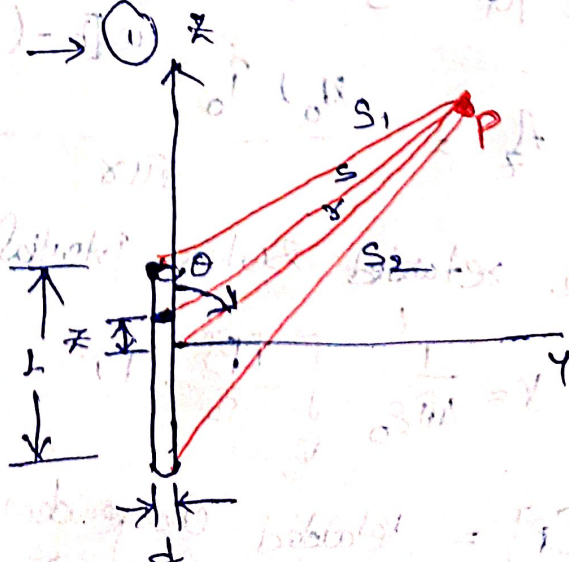 → ① z
S₁
P
s
r
θ
S₂
z
L
y
d